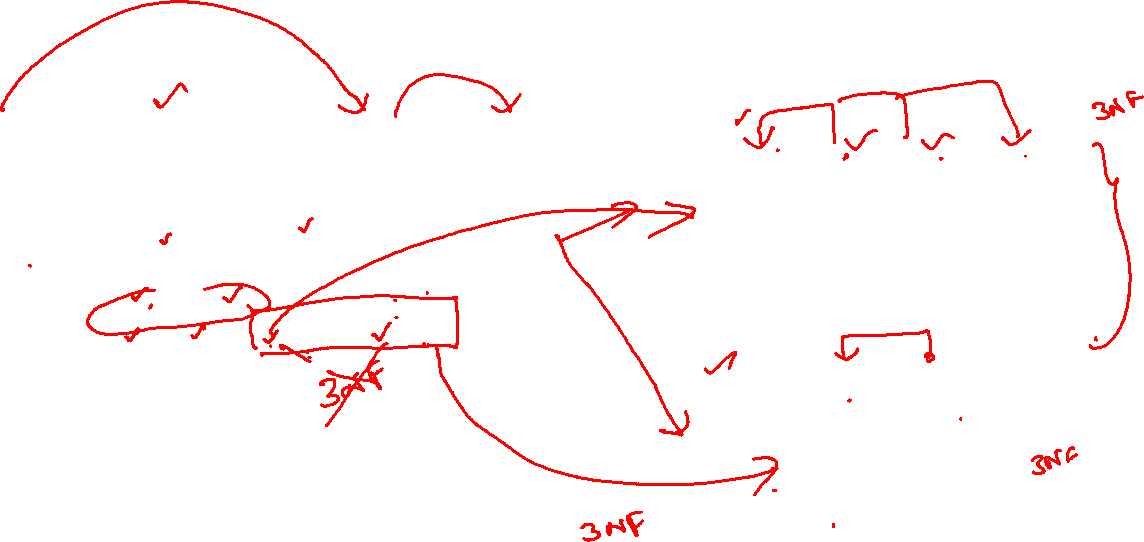 3NF
3NF
3NF
3NF